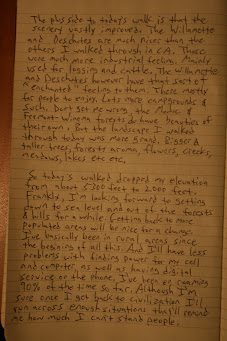 The plus side to today's walk is that the
scenery vastly improved. The Willamette
and Deschutes are much nicer than the
others I walked through in CA. Those
were much more industrial feeling. Mainly
used for logging and cattle. The Willamette
and Deschutes however have that sort of
"enchanted" feeling to them. There mostly
for people to enjoy. Lots more campgrounds &
such. Don't get me wrong, the Modoc &
Fremont-Winema forests do have beauties of
their own, but the landscape I walked
through today was more grand. Bigger &
taller trees, forests aroma, flowers, creeks,
meadows, lakes etc etc.
So today's walked dropped my elevation
from about 5300 feet to 2000 feet.
Frankly, I'm looking forward to getting
down to sea level and out of the forests
& hills for a while. Getting back to more
populated areas will be nice for a change.
I've basically been in rural areas since
the beginning of all this. And I'll have less
problems with finding power for my cell
and computer, as well as having digital
service on the phone. I've been on roaming
90% of the time so far. Although I'm
sure once I get back to civilization I'll
run across enough situations that'll remind
me how much I can't stand people.